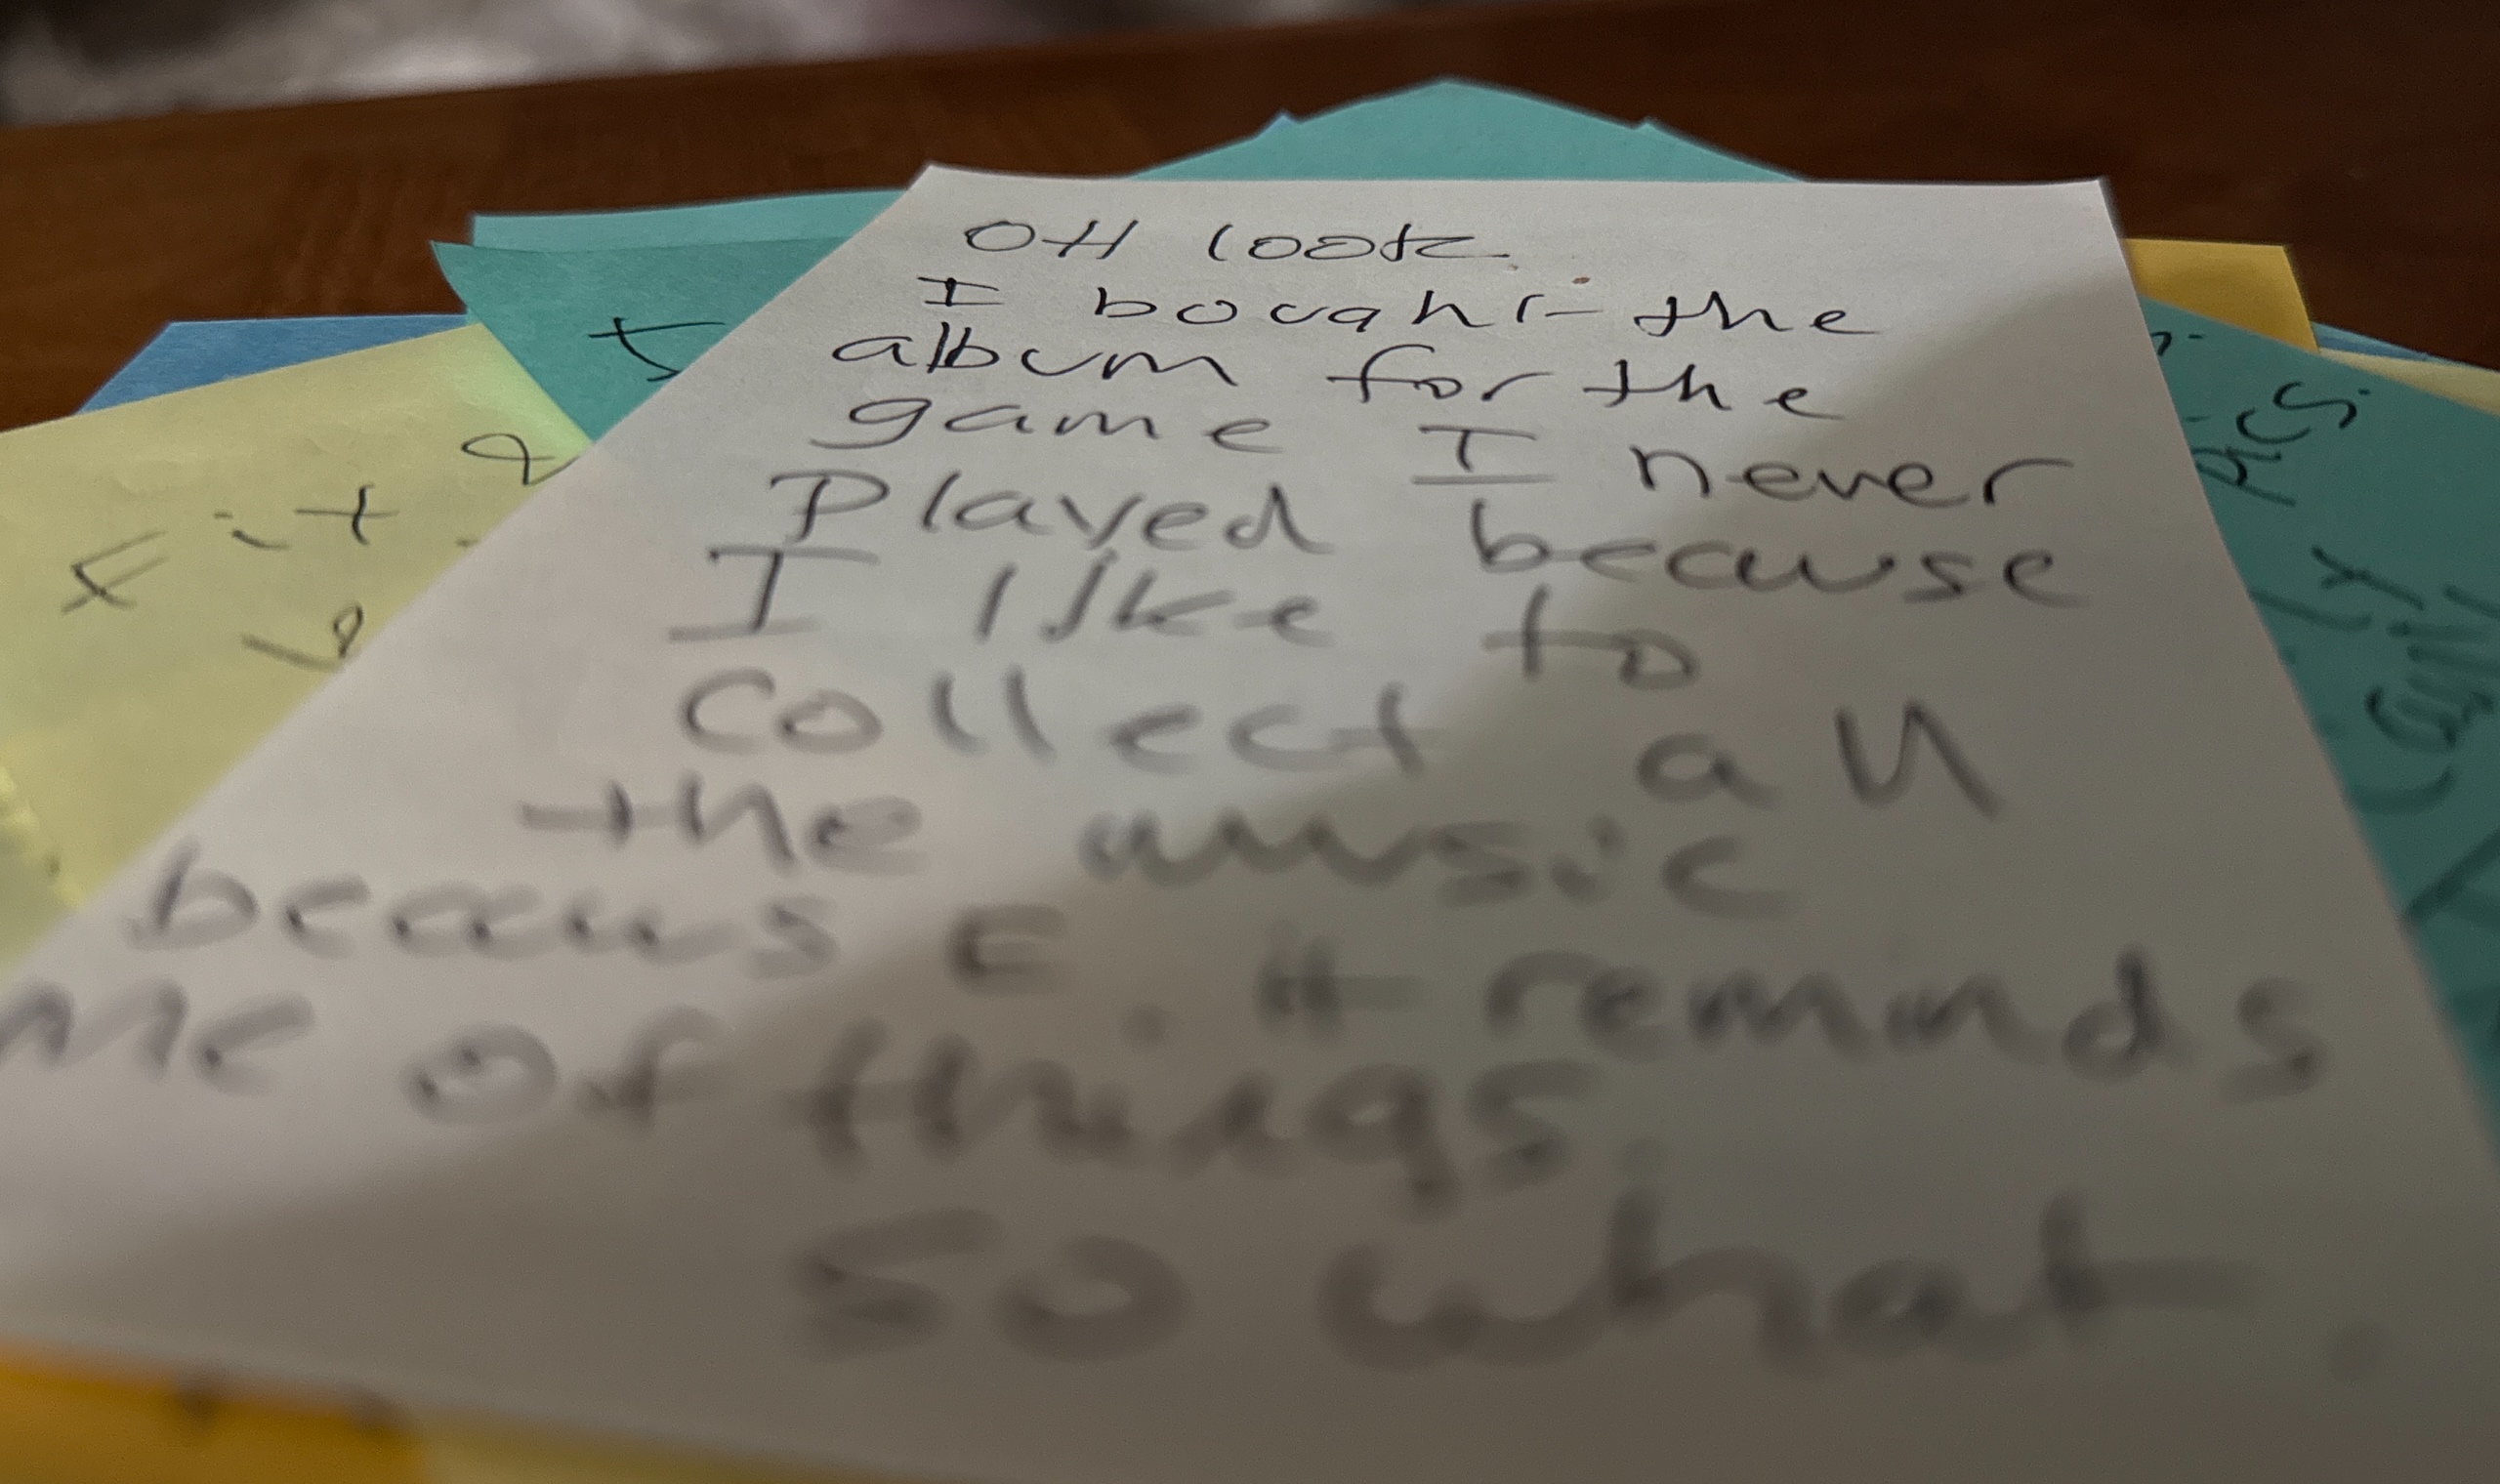 OH look.
I bought the
album for the
game I never
Played because
I like to
collect all
the music
because it reminds
me of things.
so what.
it
Pics